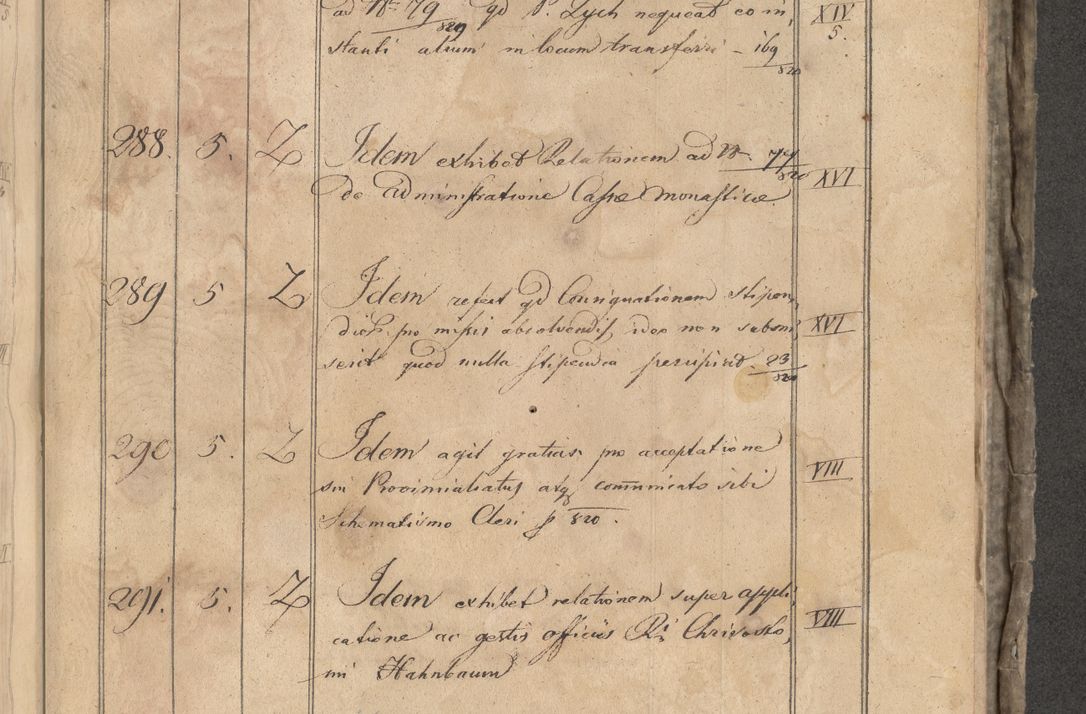 ad Nr. 79/820 qd P. Lych nequeat com, XIV
stanti alium in locum transferri – 169/820 5.
288. 5. Z Idem exhibet Relationem ad Nr. 77/820 XVI
de administratione Cassæ monasticæ
289 5 Z Idem refert qd Consignationem stipen,
dior. pro missis absolvendis ideo non subm, XVI
serit quod nulla stipendia percipiat. 23/820
290 5. Z Idem agit gratias pro acceptatione
sui Provincialatus atq communicato sibi VIII
Schematismo Cleri p 820.
291. 5. Z Idem exhibet relationem super appli,
catione ac gestis officiis Ri Chrisosto, VIII
mi Hahnbaum